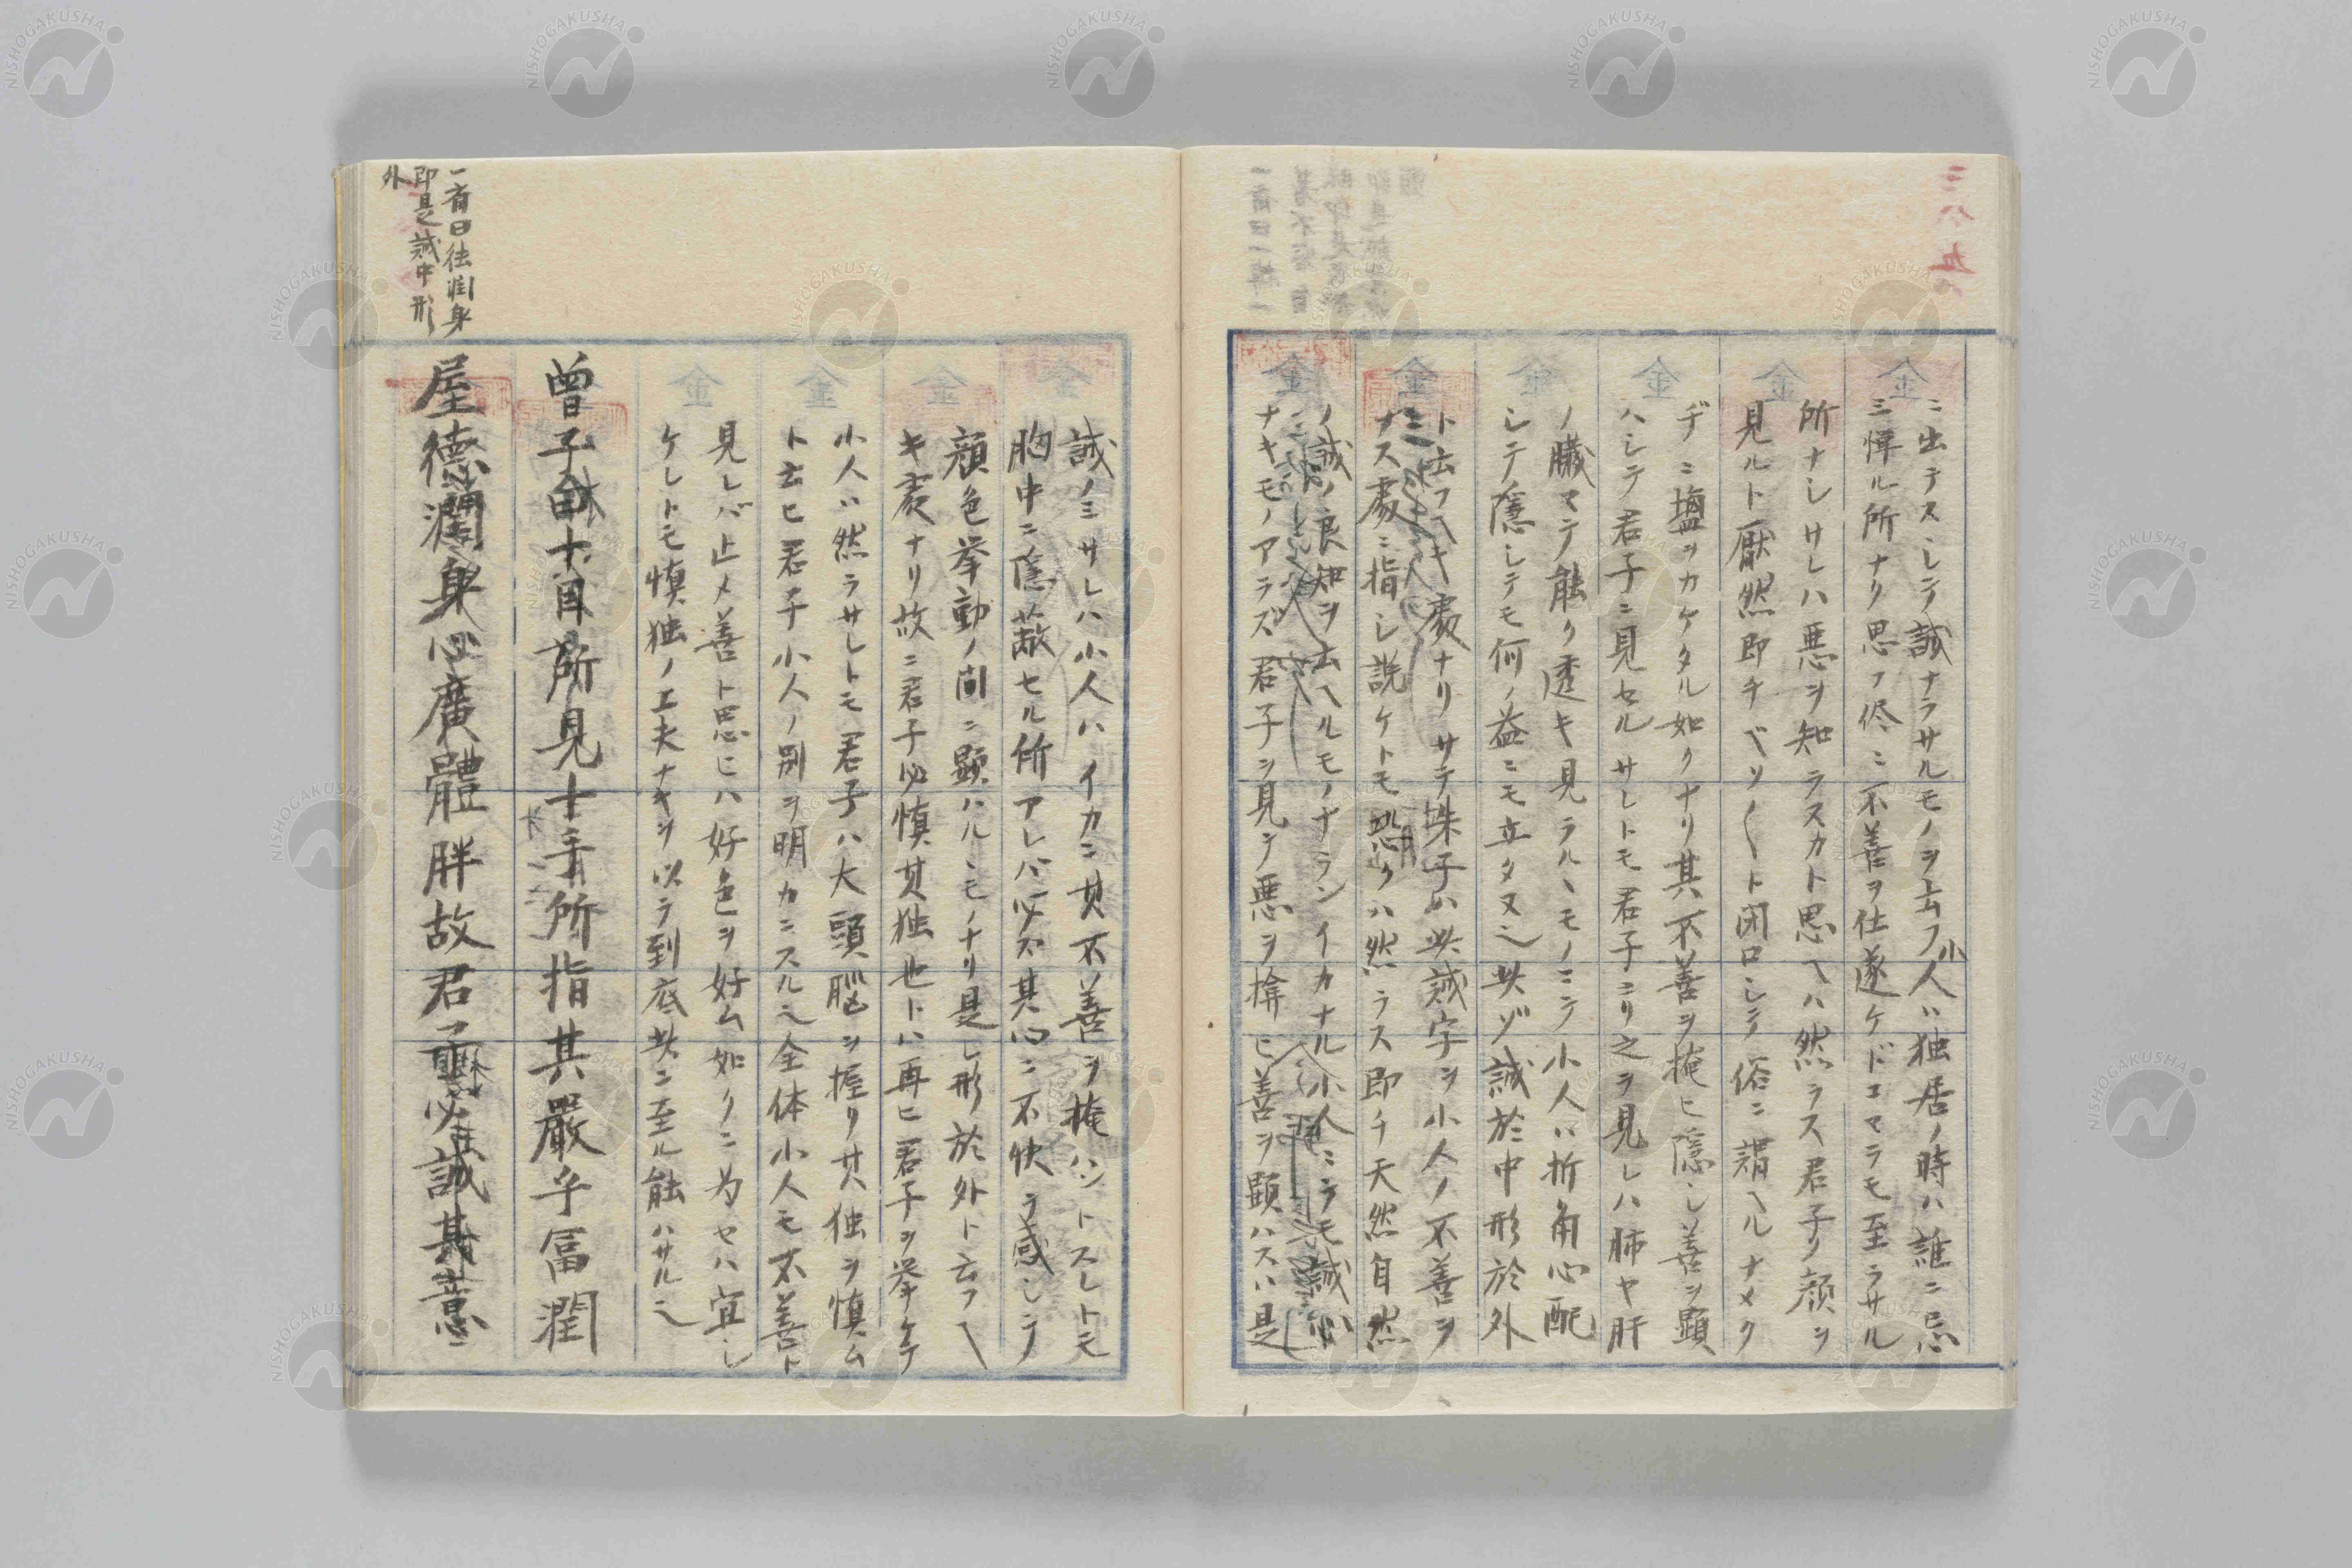 ニ出テスシテ誠ナラサルモノヲ云フ小人ハ独居ノ時ハ誰ニ忌
ミ憚ル所ナリ思フ侭ニ不善ヲ仕遂ケドコマラモ至ラサル
所ナシサレハ悪ヲ知ラスカト思ヘハ然ラス君子ノ顔ヲ
見ルト厭然即チベソ〳〵ト閉口シテ俗ニ謂ヘルナメク
ヂニ塩ヲカケタル如クナリ其不善ヲ掩ヒ隠シ善ヲ顕
ハシテ君子ニ見セルサレトモ君子ヨリ之ヲ見レハ肺ヤ肝
ノ臓マテ能ク透キ見ラルヽモノニテ小人ハ折角心配
シテ隠シテモ何ノ益ニモ立タヌ也此ゾ誠於中形於外
ト云フヘキ處ナリサテ朱子ハ此誠字ヲ小人ノ不善ヲ
ナス處ニ指シ説ケトモ恐クハ然ラス即チ天然自然
ノ誠ノ良知ヲ云ヘルモノナランイカナル小人ニテモ誠心
ナキモノアラズ君子ヲ見テ悪ヲ揜ヒ善ヲ顕ハスハ是レ
誠ノミサレハ小人ハイカニ其不善ヲ掩ハントスレトモ
胸中ニ隠蔽セル所アレバ必ス其心ニ不快ヲ感シテ
顔色挙動ノ間ニ顕ハルヽモノナリ是レ形於外ト云フヘ
キ處ナリ故ニ君子必慎其独也トハ再ヒ君子ヲ挙ケテ
小人ハ然ラサレトモ君子ハ大頭脳ヲ握リ其独ヲ慎ム
ト云ヒ君子小人ノ別ヲ明カニスル也全体小人モ不善ト
見レバ止メ善ト思ヒハ好色ヲ好ム如クニ為セハ宜シ
ケレトモ慎独ノ工夫ナキヲ以テ到底此ニ至ル能ハサル也
曾子曰十目所見十手所指其嚴乎富潤
屋德潤身心廣體胖故君子必誠其意
一斎曰徳潤身
即是誠中形
外